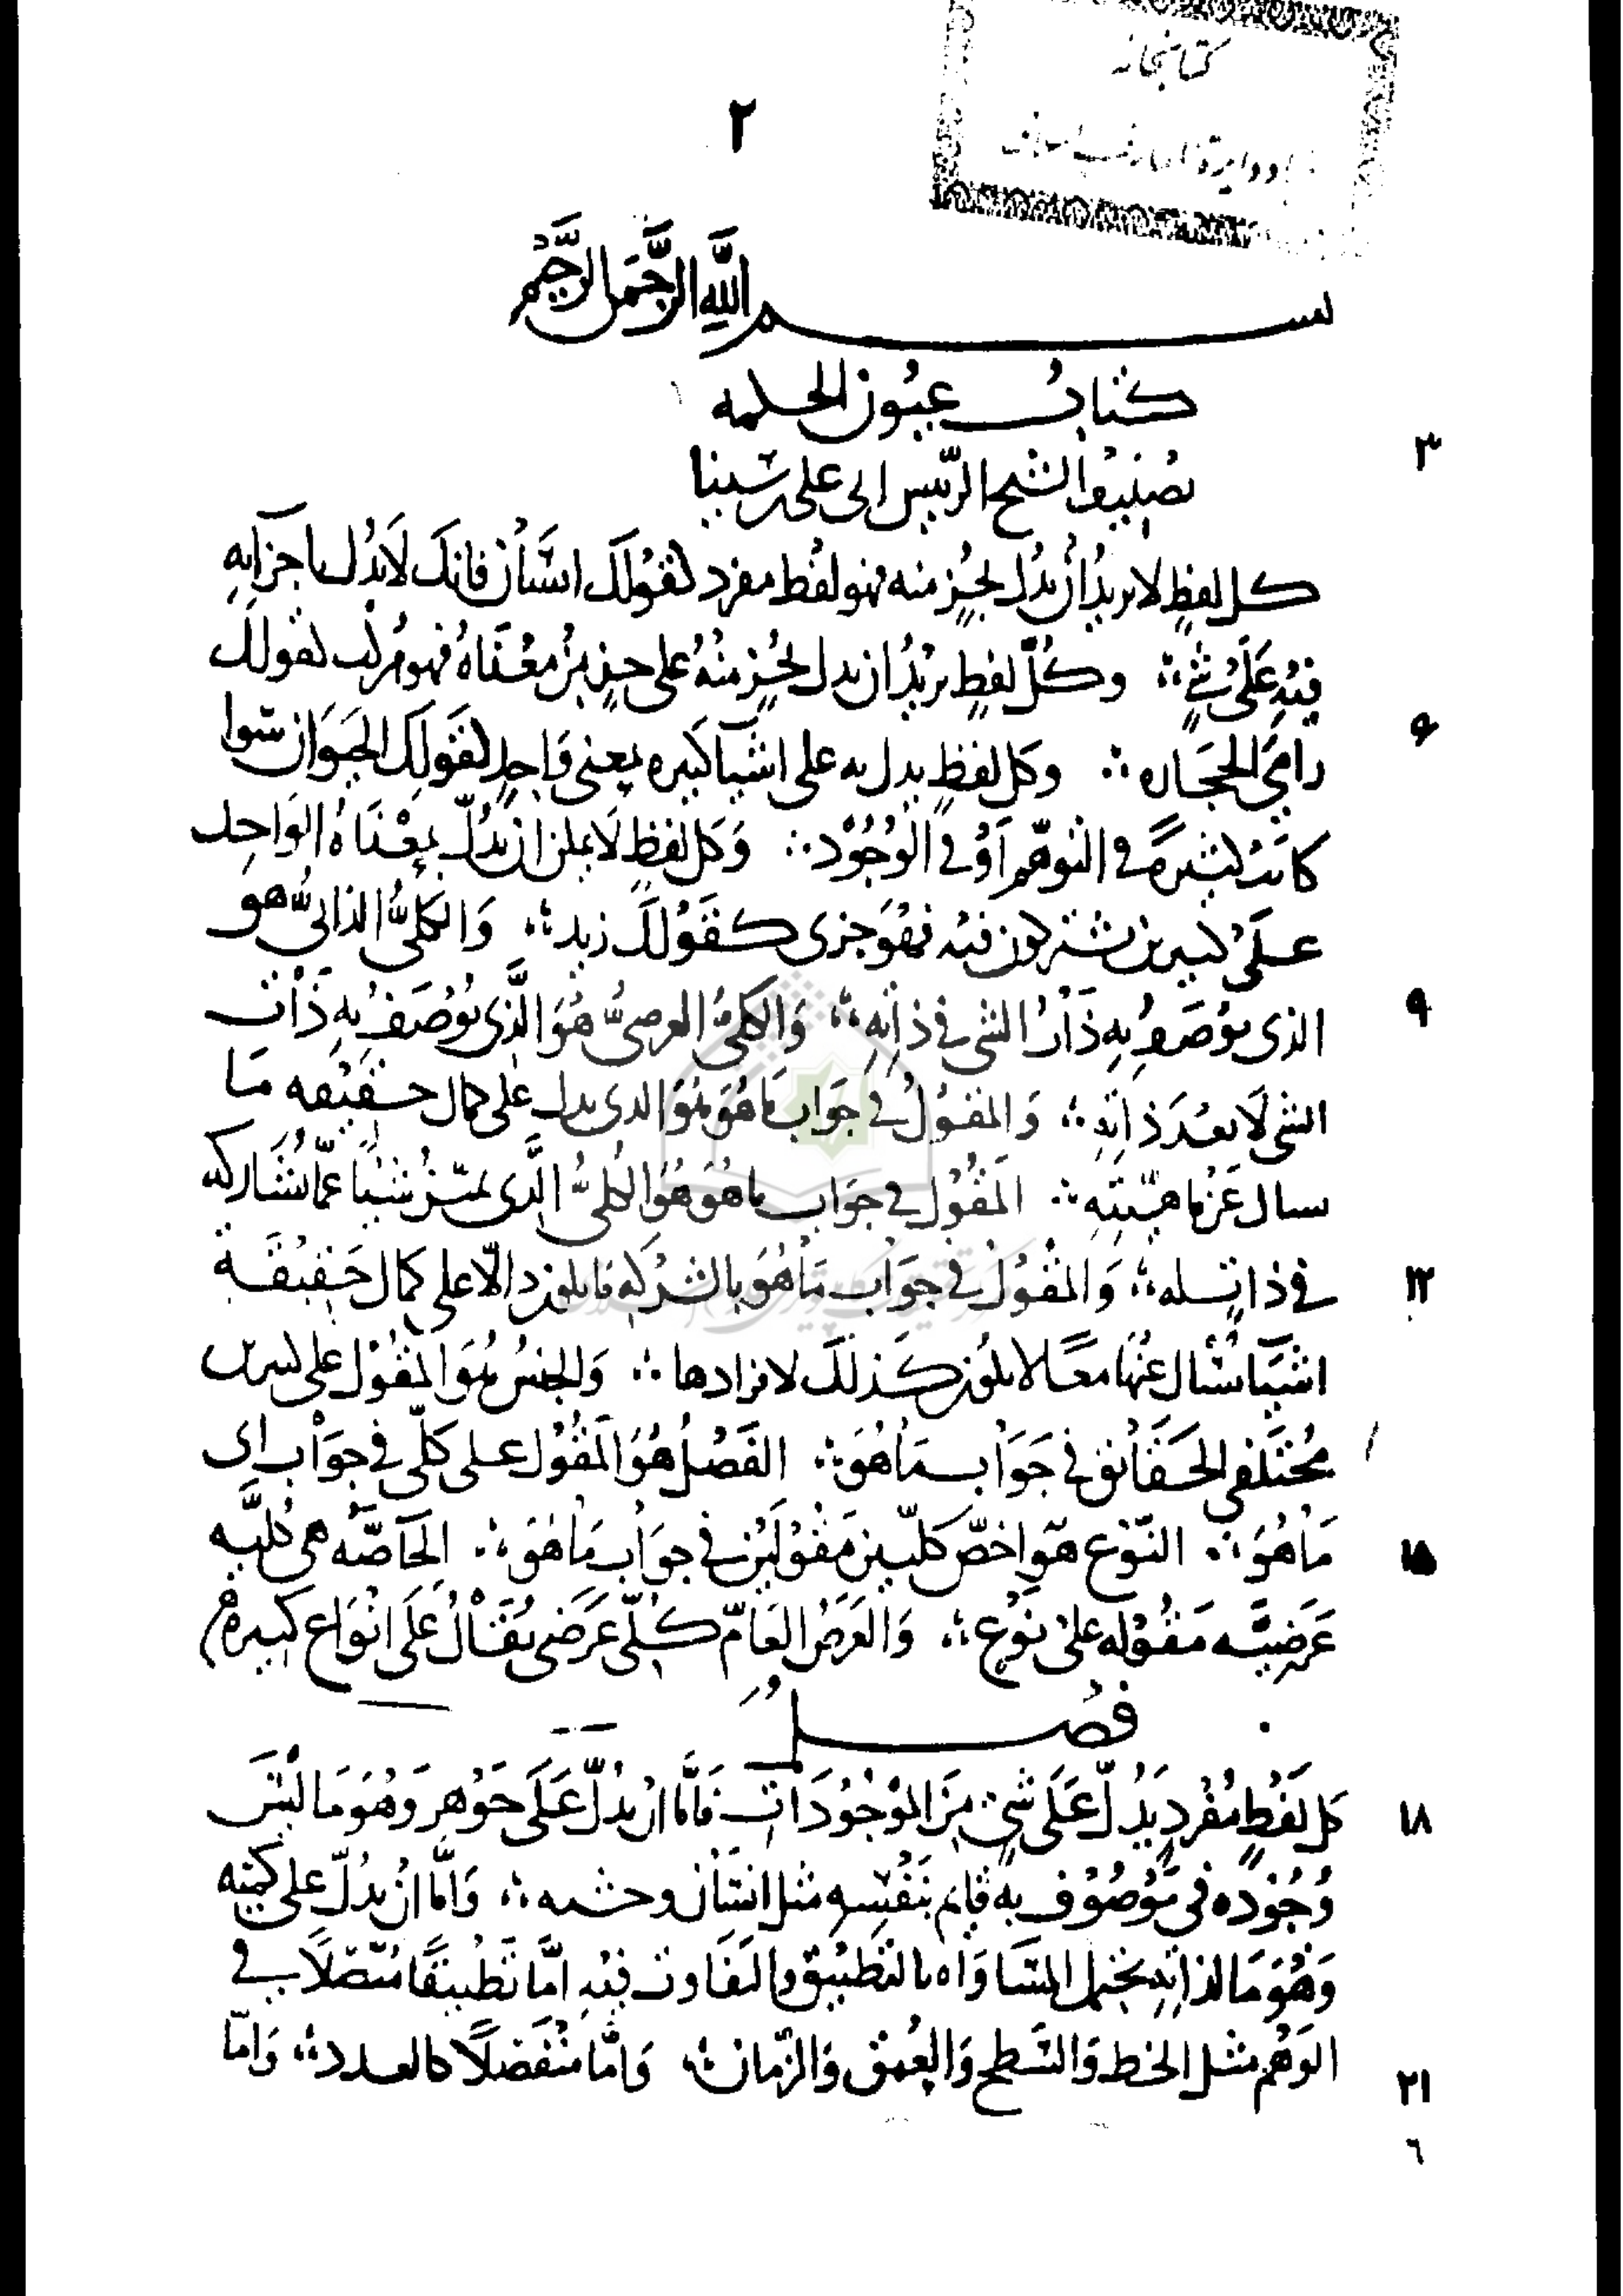 كتابخانه
٢
بسم الله الرحمن الرحيم
كتاب عيون الحكمه
٣
تصنيف الشيخ الرئيس ابى على بن سينا
كل لفظٍ لا تريد أن تدل بجزءٍ منه فهو لفظ مفرد كقولك انسان فانك لا تدل باجزآيه
فيه على شىءٍ ∴ وكلّ لفظٍ تريد ان تدل بجزءٍ منه على جزءٍ من معناه فهو مركب كقولك
٦
رامى الحجاره ∴ وكل لفظٍ يدل به على اشيا كثيره بمعنى واحدٍ كقولك الحيوان سوا
كانت كثيرةً فى التوهّم أو فى الوجود ∴ وكل لفظٍ لا يمكن ان يدلّ بمعناه الواحد
على كثيرين يشتركون فيه فهو جزى كقولك زيد ∴ والكلىّ الذاتىّ هو
٩
الذى يوصف به ذات الشى فى ذاته ∴ والكلىّ العرضىّ هو الّذى يوصف به ذات
الشى لا بعد ذاته ∴ والمقول فى جواب ما هو هو الذى يدل على كمال حقيقه ما
يسال عن ماهيّته ∴ المقول فى جواب ما هو هو الكلىّ الّذى يميّز شيئًا عمّا يشاركه
فى ذاتٍ له ∴ والمقول فى جواب ما هو بالشركه ما يكون دالّا على كمال حقيقة
١٢
اشيآ يسأل عنها معًا لا يكون كذلك لافرادها ∴ والجنس هو المقول على كثيرين
مختلفى الحقائق فى جواب ما هو ∴ الفصل هو المقول على كلّى فى جواب اى
ما هو ∴ النّوع هو اخصّ كلّيين مقولين فى جواب ما هو ∴ الخاصّه هى كليّه
١٥
عرضيّه مقوله على نوع ∴ والعرض العامّ كلّى عرضى يقال على انواع كثيره
فصل
كل لفظٍ مفردٍ يدلّ على شىء من الموجودات فامّا ان يدلّ على جوهر وهو ما ليس
١٨
وجوده فى موصوف به قايم بنفسه مثل انسان وخشبه ∴ وامّا ان يدلّ على كميّه
وهو ما لذاته يحتمل المساواه بالتطبيق والتفاوت فيه امّا تطبيقًا متّصلًا فى
الوهم مثل الخط والسّطح والعمق والزّمان ∴ وامّا منفصلًا كالعدد ∴ وامّا
٢١
٦